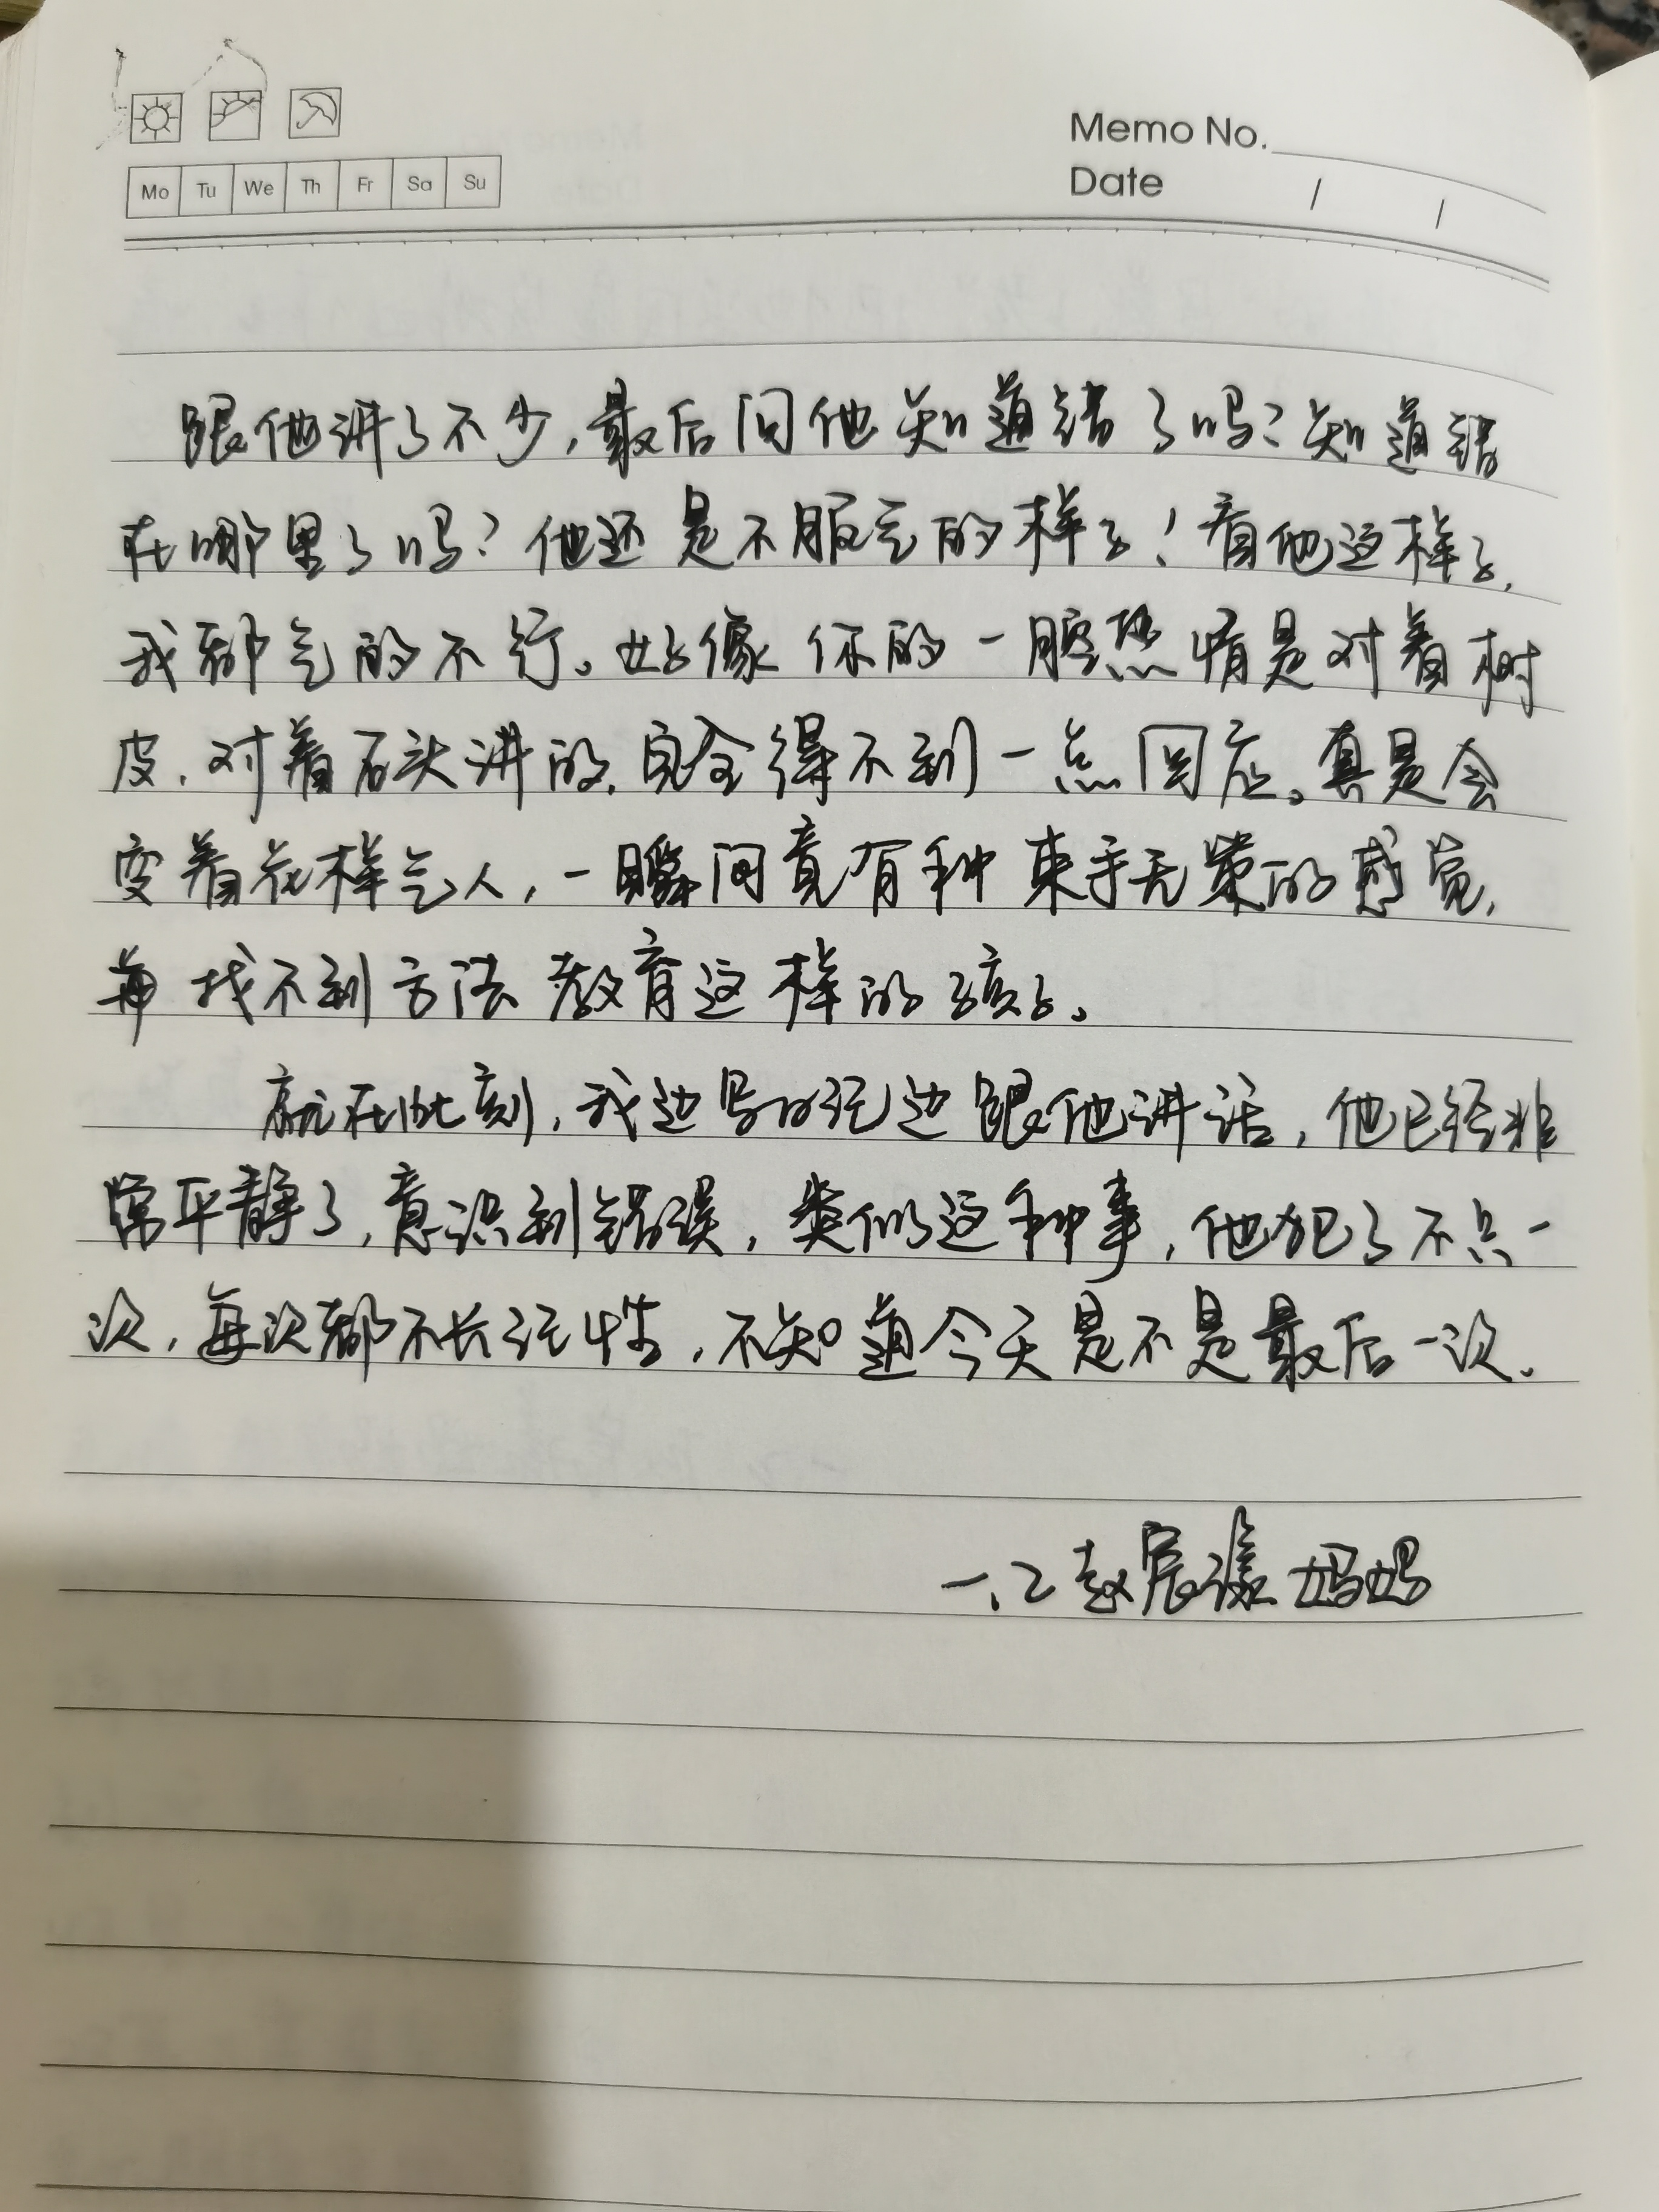 Memo No.
Mo Tu We Th Fr Sa Su
Date / /
跟他讲了不少,最后问他知道错了吗?知道错
在哪里了吗?他还是不服气的样子!看他这样子,
我都气的不行。好像你的一腔热情是对着树
皮,对着石头讲的,完全得不到一点回应。真是会
变着花样气人,一瞬间竟有种束手无策的感觉,
再找不到方法教育这样的孩子。
就在此刻,我边写日记边跟他讲话,他已经非
常平静了,意识到错误,类似这种事,他犯了不只一
次,每次都不长记性,不知道今天是不是最后一次。
一.2 赵宸漾妈妈